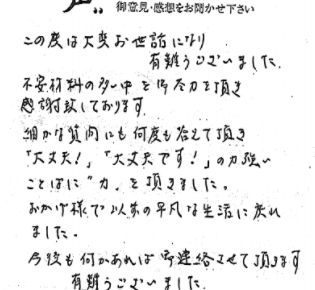 御意見・感想をお聞かせ下さい
この度は大変お世話になり
有難うございました。
不安材料の多い中を御尽力を頂き
感謝致しております。
細かな質問にも何度も答えて頂き
「大丈夫!」「大丈夫です!」の力強い
ことばに"力"を頂きました。
おかげ様で以前の平凡な生活に戻れ
ました。
今後も何かあれば御連絡させて頂きます
有難うございました。